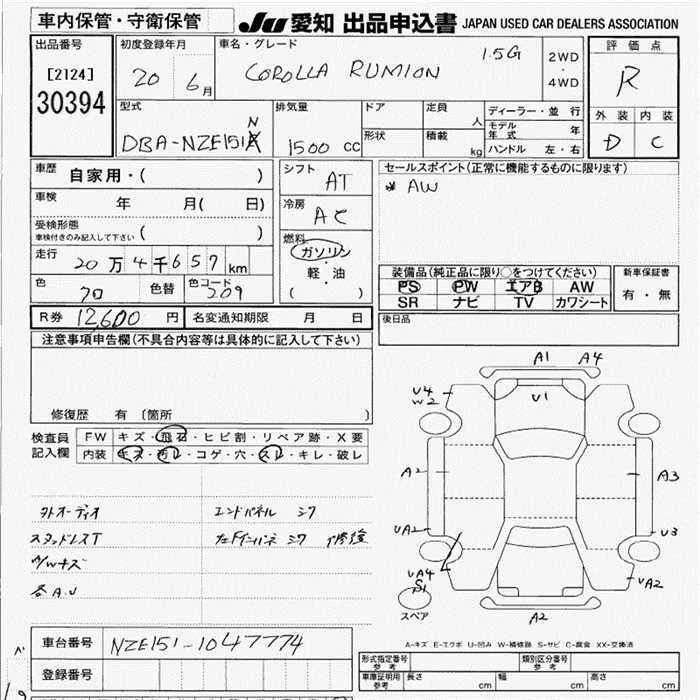 車内保管・守衛保管 JU 愛知 出品申込書 JAPAN USED CAR DEALERS ASSOCIATION
出品番号 初度登録年月 車名・グレード 評価点
[2124] 20 6月 COROLLA RUMION 1.5G 2WD・4WD R
30394
型式 排気量 ドア 定員 人 ディーラー・並行 外装 内装
モデル年式 年
DBA-NZE151N 1500cc 形状 積載 kg ハンドル 左・右 D C
車歴 自家用・( ) シフト AT セールスポイント(正常に機能するものに限ります)
AW
車検 年 月( 日) 冷房 AC
受検形態
車検付きのみ記入して下さい ( )
燃料 ガソリン・軽・油 ( )
走行 20万4千657km
装備品(純正品に限り○をつけてください) 新車保証書
色 クロ 色替 色コード 209
PS PW エアB AW 有・無
SR ナビ TV カワシート
R券 12,600円 名変通知期限 月 日 後日品
注意事項申告欄(不具合内容等は具体的に記入して下さい)
修復歴 有 〔箇所 〕
検査員 FW キズ・飛石・ヒビ割・リペア跡・X要
記入欄 内装 キズ・汚レ・コゲ・穴・スレ・キレ・破レ
A1 A4
U4 U1
W2
A2 A3
UA2 U3
UA4 UA2
S1
スペア A2
外オーディオ エンドパネル シワ
スタッドレスT シワ 修後
W/Wキズ
各A.U
A-キズ E-エクボ U-凹み W-補修跡 S-サビ C-腐食 XX-交換済
車台番号 NZE151-1047774
登録番号
形式指定番号 参考 類別区分番号 参考
車庫証明用 参考 長さ cm 幅 cm 高さ cm